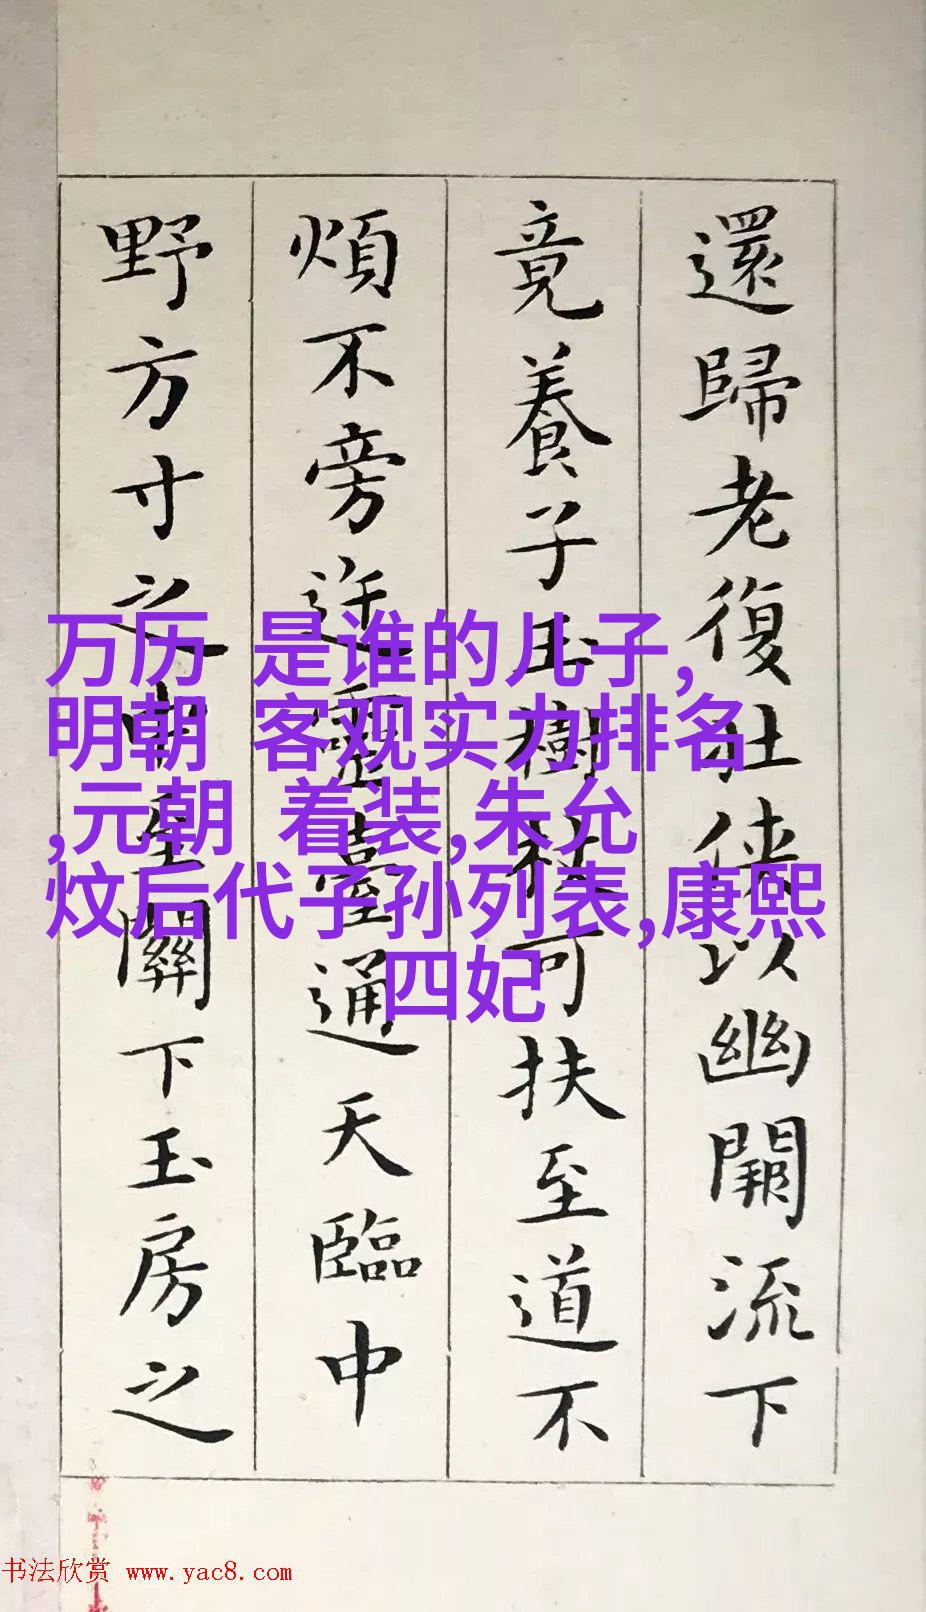 還歸老復壯侠以幽闕流下
竟養子玉樹枝可扶至道不
煩不旁迕靈臺通天臨中
野方寸之中至關下玉房之
万历 是谁的儿子,
明朝 客观实力排名
,元朝 着装,朱允
炆后代子孙列表,康熙
四妃
书法欣赏 www.yac8.com